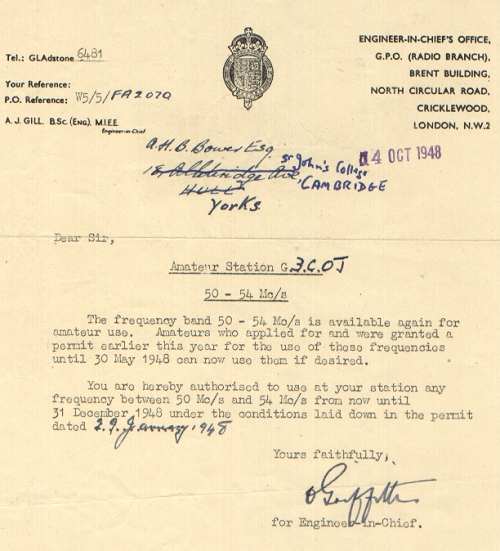 Tel.: GLAdstone 6481
Your Reference:
P.O. Reference: W5/5/FA2070
A. J. GILL. B.Sc. (Eng), M.I.E.E.
Engineer-in-Chief
ENGINEER-IN-CHIEF'S OFFICE,
G.P.O. (RADIO BRANCH),
BRENT BUILDING,
NORTH CIRCULAR ROAD,
CRICKLEWOOD,
LONDON, N.W.2
A.H.B. Bower Esq
St John's College
CAMBRIDGE
HULL
Yorks.
14 OCT 1948
Dear Sir,
Amateur Station G.3.C.OJ
50 - 54 Mc/s
The frequency band 50 - 54 Mc/s is available again for
amateur use. Amateurs who applied for and were granted a
permit earlier this year for the use of these frequencies
until 30 May 1948 can now use them if desired.
You are hereby authorised to use at your station any
frequency between 50 Mc/s and 54 Mc/s from now until
31 December 1948 under the conditions laid down in the permit
dated 29 January 1948
Yours faithfully,
for Engineer-in-Chief.